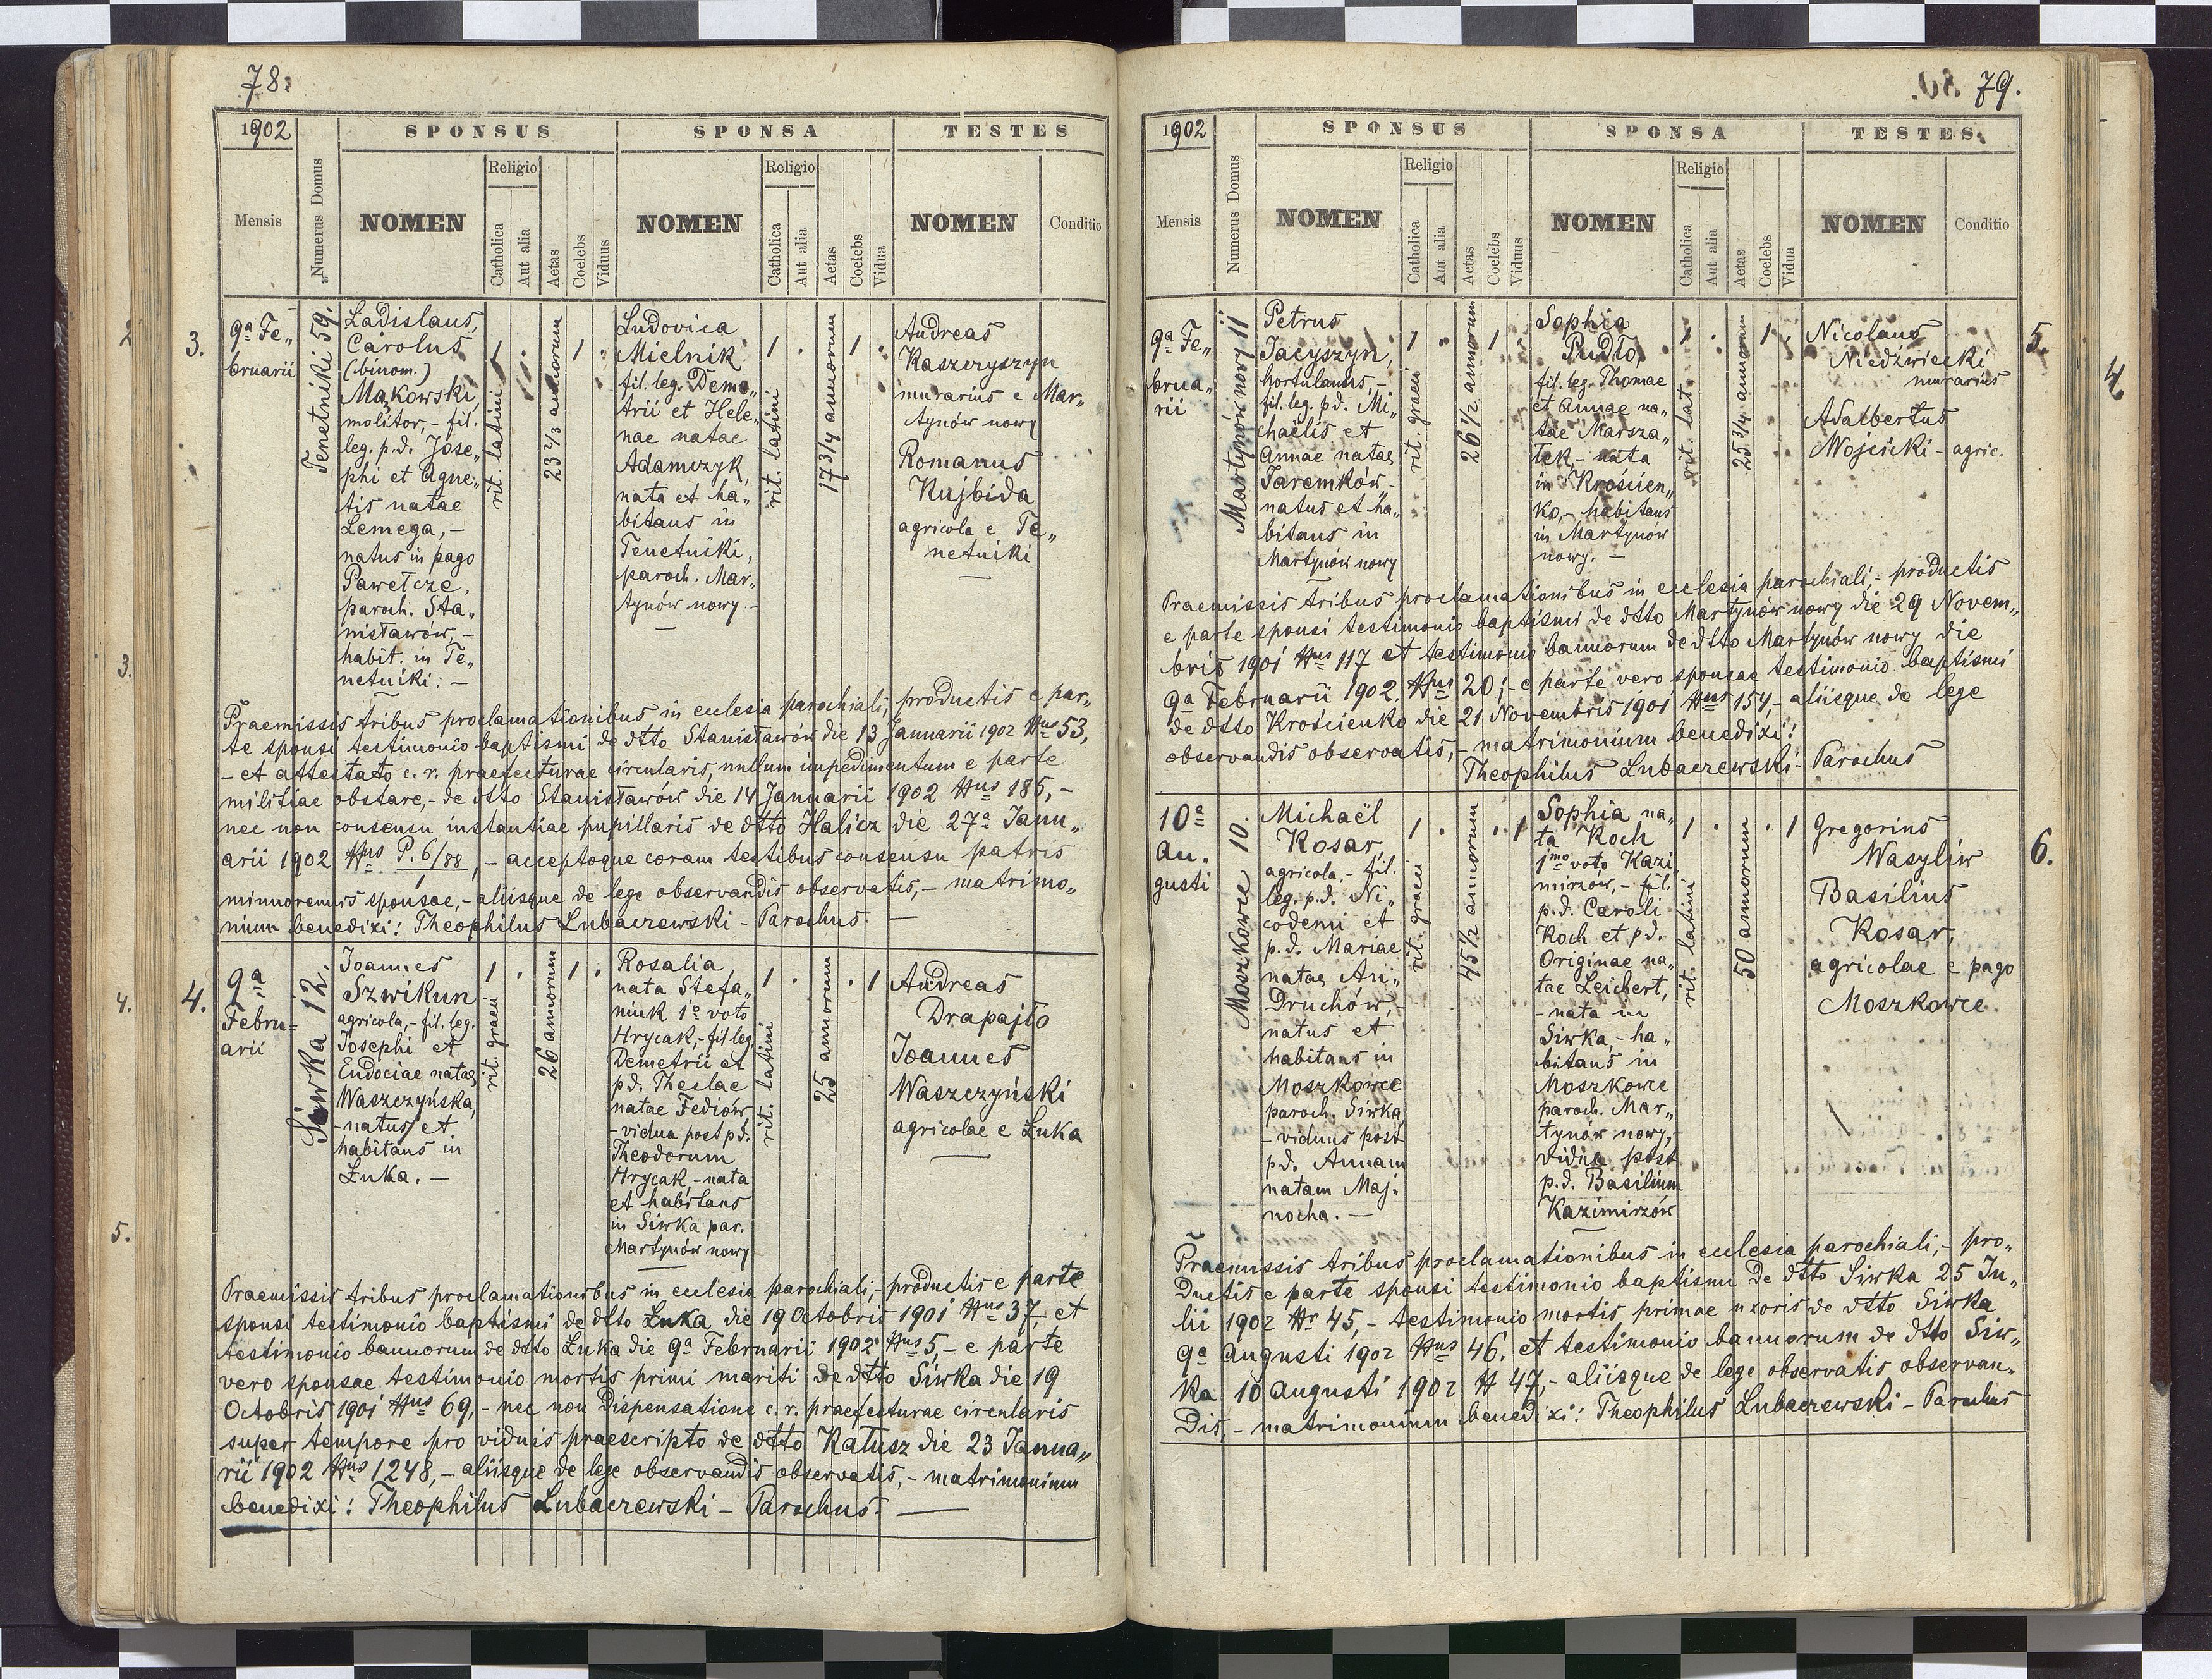 78.
1902
SPONSUS
SPONSA
TESTES
Mensis
Numerus Domus
NOMEN
Religio
Catholica
Aut alia
Aetas
Coelebs
Viduus
NOMEN
Religio
Catholica
Aut alia
Aetas
Coelebs
Vidua
NOMEN
Conditio
3.
9ª Fe„
bruarii
Tenetniki 59.
Ladislaus,
Carolus
(binom.)
Makowski,
molitor, – fil.
leg. p.d. Jose„
phi et Agne„
tis natae
Lemega, –
natus in pago
Pawełcze,
paroch. Sta„
nisławów, –
habit. in Te„
netniki. –
1
rit. latini
23 2/3 annorum
1
Ludovica
Mielnik
fil. leg. Deme„
trii et Hele„
nae natae
Adamczyk,
nata et ha„
bitans in
Tenetniki,
paroch. Mar„
tynów nowy. –
1
rit. latini
17 3/4 annorum
1
Andreas
Kaszczyszyn
murarius e Mar„
tynów nowy
Romanus
Kujbida
agricola e Te„
netniki
Praemissis tribus proclamationibus in ecclesia parochiali, productis e par„
te sponsi testimonio baptismi de dtto Stanisławów die 13 Januarii 1902 Nus 53,
– et attestato c. r. praefecturae circularis, nullum impedimentum e parte
militiae obstare, – de dtto Stanisławów die 14 Januarii 1902 Nus 185, –
nec non consensu instantiae pupillaris de dtto Halicz die 27ª Janu„
arii 1902 Nus P. 6/88, – acceptoque coram testibus consensu patris
minorennis sponsae, – aliisque de lege observandis observatis, – matrimo„
nium benedixi! Theophilus Lubaczewski – Parochus. –
4.
9ª
Febru=
arii
Siwka 12.
Joannes
Szwikun
agricola, – fil. leg.
Josephi et
Eudociae natae
Waszczyńska,
– natus et
habitans in
Łuka. –
1
rit. graeci
26 annorum
1
Rosalia
nata Stefa„
niuk 1º voto
Hrycak, – fil. leg.
Demetrii et
pd. Theclae
natae Fediów
– vidua post pd.
Theodorum
Hrycak, – nata
et habitans
in Siwka par.
Martynów nowy
1
rit. latini
25 annorum
1
Andreas
Drapajło
Joannes
Waszczyński
agricolae e Łuka
Praemissis tribus proclamationibus in ecclesia parochiali, – productis e parte
sponsi testimonio baptismi de dtto Łuka die 19 Octobris 1901 Nus 37, et
testimonio bannorum de dtto Łuka die 9ª Februarii 1902 Nus 5, – e parte
vero sponsae testimonio mortis primi mariti de dtto Siwka die 19
Octobris 1901 Nus 69, – nec non dispensatione c. r. praefecturae circularis
super tempore pro viduis praescripto de dtto Kałusz die 23 Janua„
rii 1902 Nus 1248, – aliisque de lege observandis observatis, – matrimonium
benedixi! Theophilus Lubaczewski – Parochus. –
2
3.
4.
5.
79.
1902
SPONSUS
SPONSA
TESTES
Mensis
Numerus Domus
NOMEN
Religio
Catholica
Aut alia
Aetas
Coelebs
Viduus
NOMEN
Religio
Catholica
Aut alia
Aetas
Coelebs
Vidua
NOMEN
Conditio
9ª Fe„
brua„
rii
Martynów nowy 11
Petrus
Jacyszyn,
hortulanus, –
fil. leg. pd. Mi„
chaëlis et
Annae natae
Jaremków –
natus et ha„
bitans in
Martynów nowy
1
rit. graeci
26 1/2 annorum
1
Sophia
Pudło,
fil. leg. Thomae
et Annae na„
tae Marsza„
łek, – nata
in Krościen„
ko, – habitans
in Martynów
nowy. –
1
rit. lat.
25 3/4 annorum
1
Nicolaus
Niedźwiecki
murarius
Adalbertus
Wojcicki – agric.
5.
4
Praemissis tribus proclamationibus in ecclesia parochiali, – productis
e parte sponsi testimonio baptismi de dtto Martynów nowy die 29 Novem„
bris 1901 Nus 117 et testimonio bannorum de dtto Martynów nowy die
9ª Februarii 1902, Nus 20; – e parte vero sponsae testimonio baptismi
de dtto Krościenko die 21 Novembris 1901 Nus 154, – aliisque de lege
observandis observatis, – matrimonium benedixi!
Theophilus Lubaczewski – Parochus
10ª
Au„
gusti
Moszkowce 10.
Michaël
Kosar,
agricola, – fil.
leg. p.d. Ni„
codemi et
p.d. Mariae
natae An„
druchów, –
natus et
habitans in
Moszkowce
paroch. Siwka
– viduus post
pd. Annam
natam Maj„
nocha. –
1
rit. graeci
45 1/2 annorum
1
Sophia na„
ta Koch
1mo voto, Kazi„
mirzów, – fil.
p.d. Caroli
Koch et pd.
Originae na„
tae Leichert,
– nata in
Siwka, – ha„
bitans in
Moszkowce
paroch. Mar„
tynów nowy, –
vidua post
p.d. Basilium
Kazimirzów
1
rit. latini
50 annorum
1
Gregorius
Wasyliw
Basilius
Kosar,
agricolae e pago
Moszkowce
6.
Praemissis tribus proclamationibus in ecclesia parochiali, – pro„
ductis e parte sponsi testimonio baptismi de dtto Siwka 25 Ju„
lii 1902 Nr 45, – testimonio mortis primae uxoris de dtto Siwka
9ª Augusti 1902 Nus 46. et testimonio bannorum de dtto Siw„
ka 10 Augusti 1902 N 47, – aliisque de lege observatis observan„
dis, – matrimonium benedixi! Theophilus Lubaczewski – Parochus